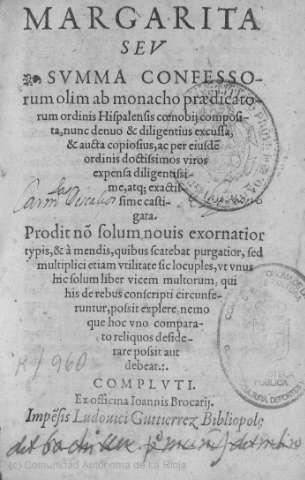 MARGARITA
SEV
SVMMA CONFESSO-
rum olim ab monacho prædicato-
rum ordinis Hispalensis cœnobij composi-
ta, nunc denuo & diligentius excussa,
& aucta copiosius, ac per eiusdē
ordinis doctissimos viros
expensa diligentissi-
me, atq; exactis
sime casti-
gata.
Prodit nō solum nouis exornatior
typis, & à mendis, quibus scatebat purgatior, sed
multiplici etiam vtilitate sic locuples, vt vnus
hic solum liber vicem multorum, qui
his de rebus conscripti circunfe-
runtur, possit explere, nemo
que hoc vno compara-
to reliquos deside-
rare possit aut
debeat.:.
COMPLVTI.
Ex officina Ioannis Brocarij.
Impēsis Ludouici Guttierrez Bibliopolę
R/ 960
PUBLICA
(c) Comunidad Autónoma de La Rioja